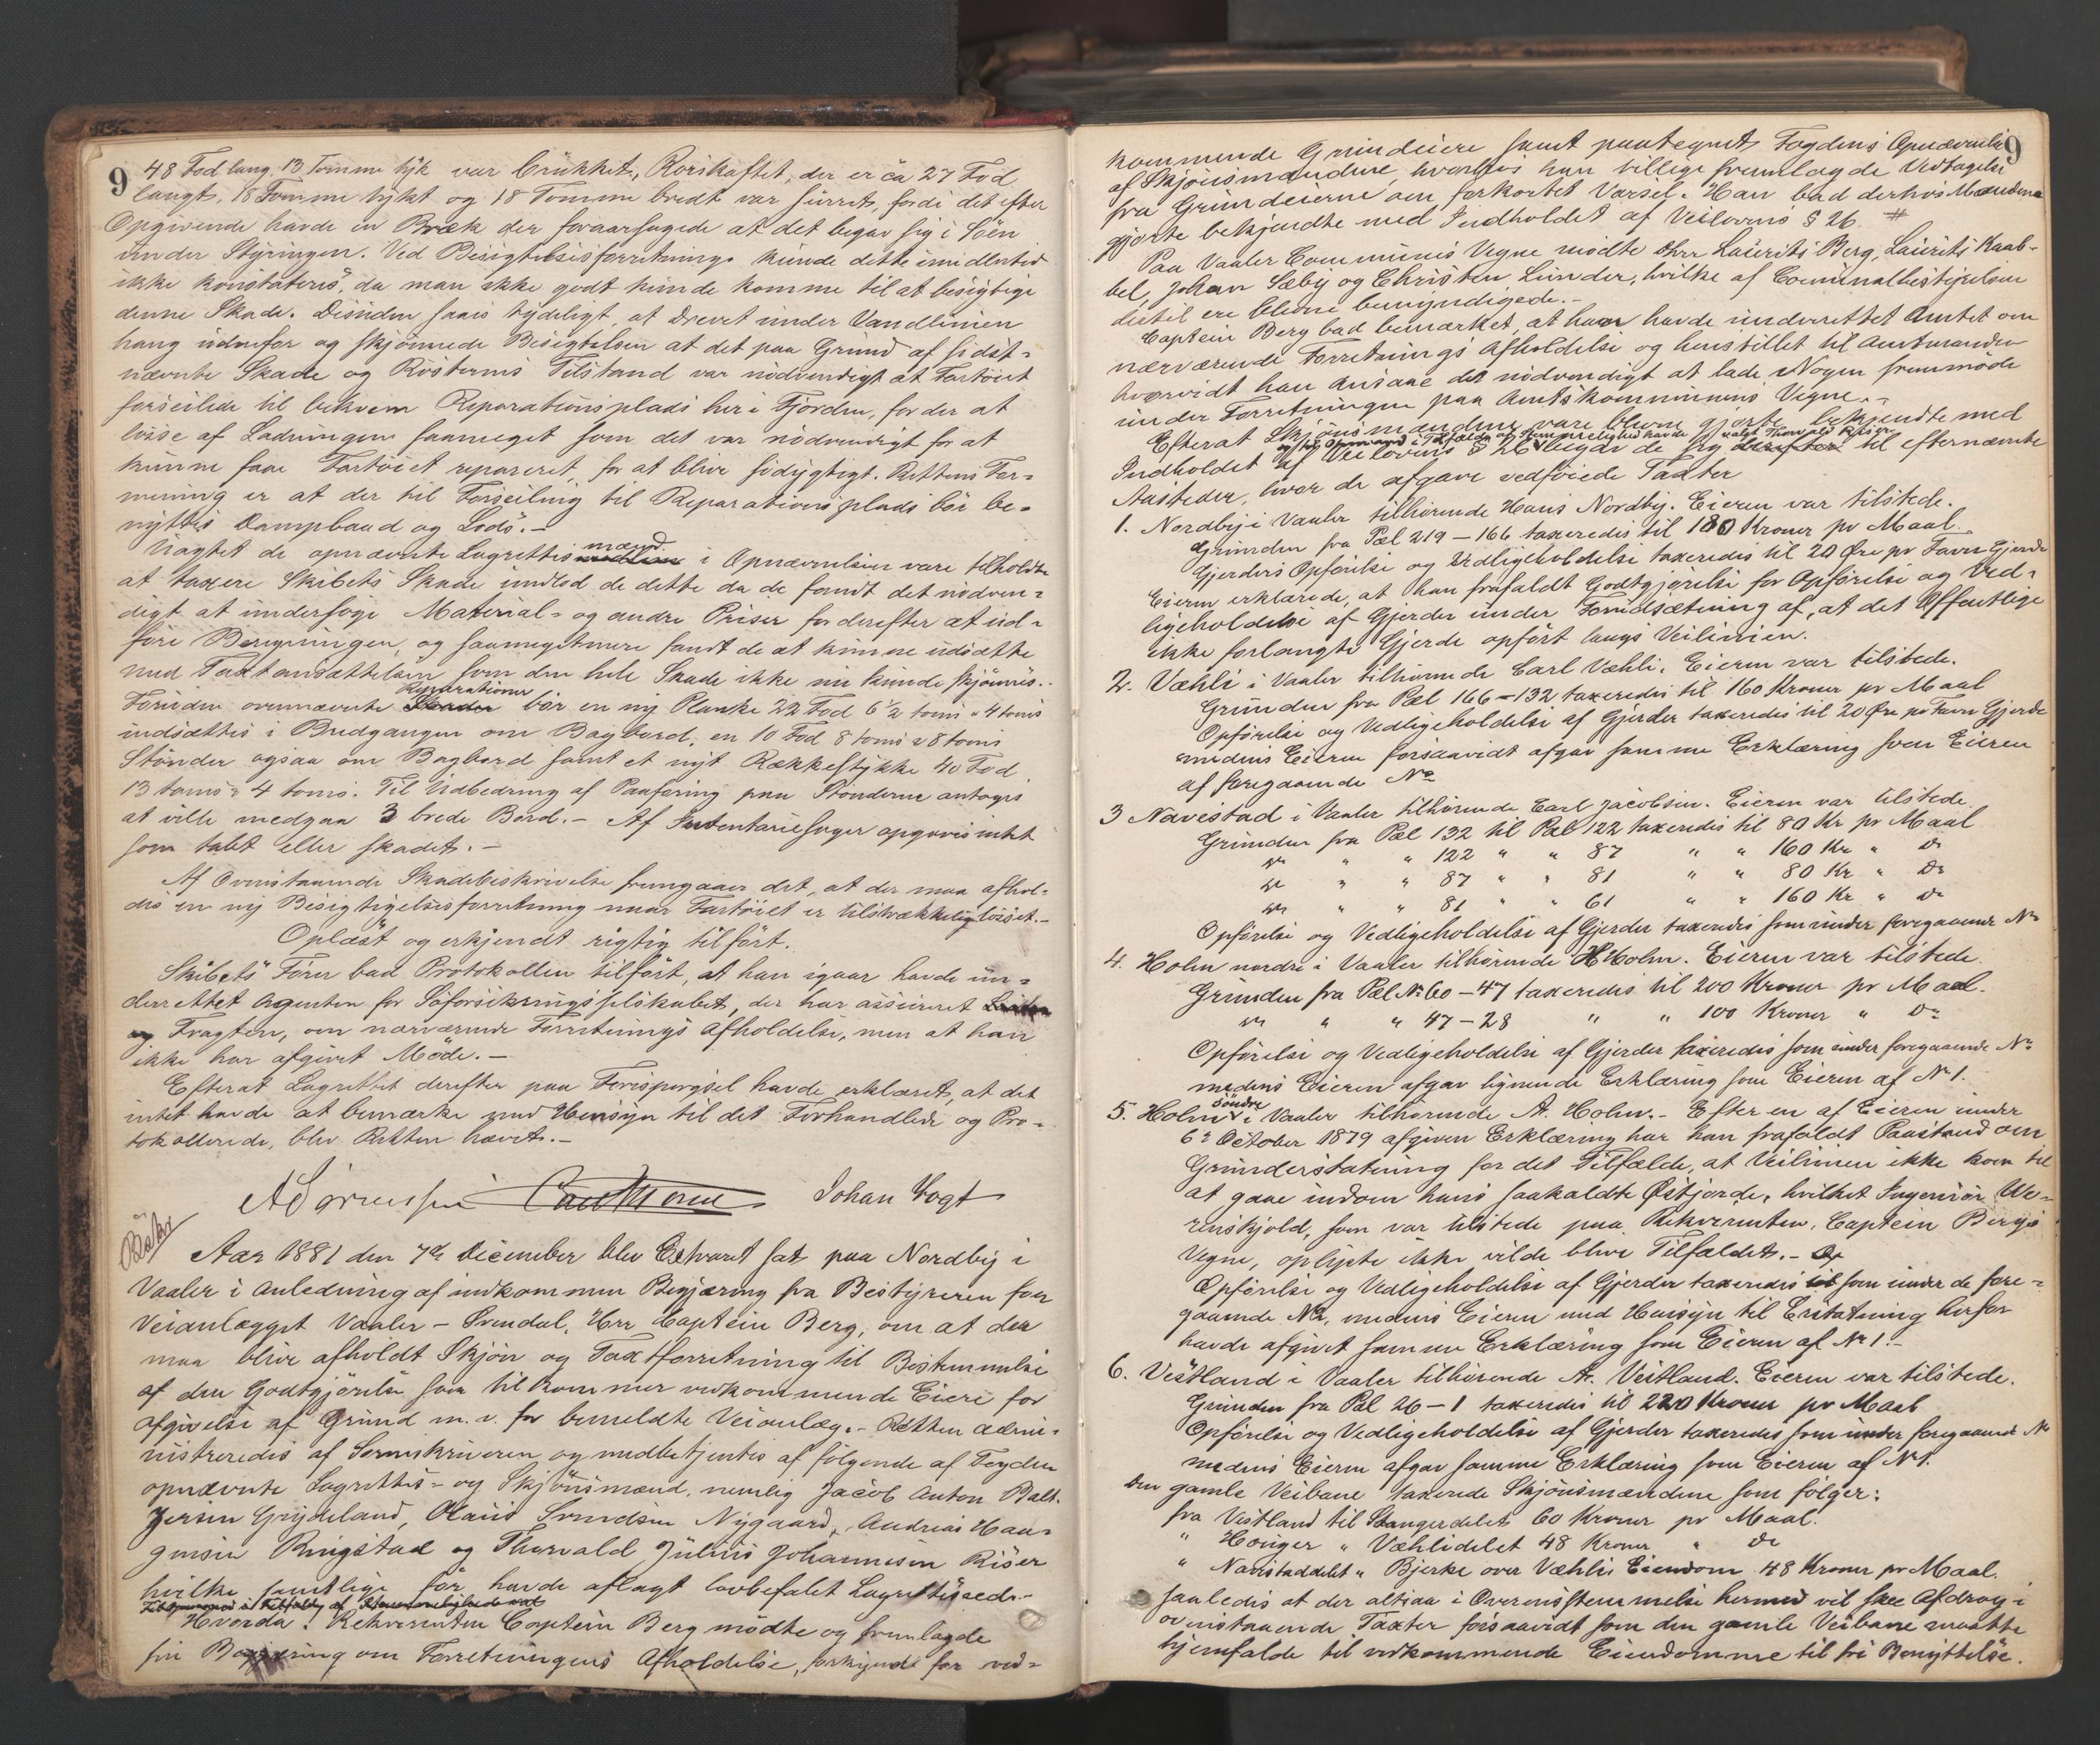 9
48 Fod lang, 13 Tomme tyk var brukket, Rorskaftet, der er ca 27 Fod
langt, 18 Tomme tykt og 18 Tomme bredt var surret, fordi det efter
Opgivende havde en Bræk der foraarsagede at det begav sig i Söen
under Styringen. Ved Besigtelsesforretnings kunde dette imidlertid
ikke konstateres, da man ikke godt kunde komme til at besigtige
denne Skade. Desuden saaes tydeligt, at Drevet under Vandlinien
hang udenfor og skjönnede Besigtelsen at det paa Grund af sidst-
nævnte Skade og Rösterns Tilstand var nödvendigt at Fartöiet
forseilede til bekvem Reparationsplads her i Fjorden, for der at
losse af Ladningen saameget som det var nödvendigt for at
kunne faae Fartöiet repareret, for at blive södygtigt. Rettens For-
mening er at der til Forseiling til Reparationsplads bör be-
nyttes Dampbaad og Lods.-
Uagtet de opnævnte Lagrettesmænd i Opnævnelsen vare tilholdte
at taxere Skibets Skade undlod de dette da de fandt det nödven-
digt at undersöge Material- og andre Priser for derefter at ud-
före Beregningen, og saameget mere fandt de at kunne udsætte
med Taxtansættelsen som den hele Skade ikke nu kunde skjönnes.-
Foruden ovennævnte Reparationer bör en ny Planke 22 Fod 6½ toms a 4 toms
indsættes i Bredgangen om Bagbord, en 10 Fod 8 toms a 8 toms
Stönder ogsaa om Bagbord samt et nyt Rækkestykke 40 Fod
13 toms a 4 toms. Til Udbedring af Paaforing paa Stönderne antoges
at ville medgaa 3 brede Bord.- Af Inventariesager opgaves intet
som tabt eller skadet.-
Af Ovenstaaende Skadebeskrivelse fremgaaer det, at der maa afhol-
des en ny Besigtigelsesforretning naar Fartöiet er tilstrækkelig losset.-
Oplæst og erkjendt rigtig tilfört.
Skibets Förer bad Protokollen tilfört, at han igaar havde un-
derrettet Agenten for Söforsikringsselskabet, der har assureret
og Fragten, om nærværende Forretnings Afholdelse, men at han
ikke har afgivet Möde.-
Efterat Lagrettet derefter paa Forespörgsel havde erklæret, at det
intet havde at bemærke med Hensyn til det Forhandlede og Pro-
tokollerede, blev Retten hævet.-
A Sörenssen Johan Vogt
Aar 1881 den 7de December blev Extraret sat paa Nordby i
Vaaler i Anledning af indkommen Begjæring fra Bestyreren for
Veianlægget Vaaler - Svendal, Herr Captein Berg, om at der
maa blive afholdt Skjön og Taxtforretning til Bestemmelse
af den Godtgjörelse som tilkommer vedkommende Eiere for
Afgivelse af Grund m. v. for bemeldte Veianlæg.- Retten admi-
nistreredes af Sorenskriveren og medbetjentes af fölgende af Fogden
opnævnte Lagrettes- og Skjönsmænd, nemlig Jacob Anton Balt-
zersen Grydeland, Olaus Svendsen Nygaard, Andreas Haa-
gensen Ringstad og Thorvald Julius Johannesen Riser
hvilke samtlige för havde aflagt lovbefalet Lagrettesed.-
Hvorda: Rekvirenten Captein Berg mödte og fremlagde
sin Begjæring om Forretningens Afholdelse, forkyndt for ved-
9
kommende Grundeiere samt paategnet Fogdens Opnævnelse
af Skjönsmændene, hvorhos han tillige fremlagde Vedtagelse
fra Grundeierne om forkortet Varsel. Han bad derhos Mændene
gjorte bekjendte med Indholdet af Veilovens § 26 #
Paa Vaaler Communes Vegne mödte Hrr Laurits Berg, Laurits Kaab-
bel, Johan Sæby og Christen Linder, hvilke af Communalbestyrelsen
dertil ere blevne bemyndigede.-
Captein Berg bad bemærket, at han havde underrettet Amtet om
nærværende Forretnings Afholdelse og henstillet til Amtmanden
hvorvidt han ansaae det nödvendigt at lade Nogen fremmöde
under Forretningen paa Amtskommunens Vegne.-
Efterat Skjönsmændene vare blevne gjorte bekjendte med
og til Opmand i Tilfælde af Stemmelighed havde valgt Thorvald Riser
Indholdet af Veilovens § 26 begav de sig derefter til efternævnte
Aasteder, hvor de afgave vedföiede Taxter
1. Nordby i Vaaler tilhörende Hans Nordby. Eieren var tilstede.
Grunden fra Pæl 219 - 166 taxeredes til 180 Kroner pr Maal.
Gjerders Opförelse og Vedligeholdelse taxeredes til 20 Öre pr Favn Gjerde
Eieren erklærede, at han frafaldt Godtgjörelse for Opförelse og Ved-
ligeholdelse af Gjerder under Forudsætning af, at det Offentlige
ikke forlangte Gjerde opfört langs Veilinien.
2. Væhli i Vaaler tilhörende Carl Væhli. Eieren var tilstede.
Grunden fra Pæl 166 - 132 taxeredes til 160 Kroner pr Maal
Opförelse og Vedligeholdelse af Gjerder taxeredes til 20 Öre pr Favn Gjerde
medens Eieren forsaavidt afgav samme Erklæring som Eieren
af foregaaende No
3 Navestad i Vaaler tilhörende Carl Jacobsen. Eieren var tilstede.
Grunden fra Pæl 132 til Pæl 122 taxeredes til 80 Kr pr Maal
do " " 122 " " 87 " " 160 Kr " Do
do " " 87 " " 81 " " 80 Kr " Do
do " " 81 " " 61 " " 160 Kr " Do
Opförelse og Vedligeholdelse af Gjerder taxeredes som under foregaaende No
4. Holm nordre i Vaaler tilhörende H Holm. Eieren var tilstede.
Grunden fra Pæl No 60 - 47 taxeredes til 200 Kroner pr Maal.
do " " 47 - 28 " " 100 Kroner " Do
Opförelse og Vedligeholdelse af Gjerder taxeredes som under foregaaende No
medens Eieren afgav lignende Erklæring som Eieren af No 1.
5. Holm söndre i Vaaler tilhörende A. Holm.- Efter en af Eieren under
6te October 1879 afgiven Erklæring har han frafaldt Paastand om
Grunderstatning for det Tilfælde, at Veilinien ikke kom til
at gaae indom hans saakaldte Östjorde, hvilket Ingeniör We-
renskjold, som var tilstede paa Rekvirenten, Captein Bergs
Vegne, oplyste ikke vilde blive Tilfældet.-
Opförelse og Vedligeholdelse af Gjerder taxeredes til som under de fore-
gaaende No, medens Eieren med Hensyn til Erstatning herfor
havde afgivet samme Erklæring som Eieren af No 1.-
6. Vestland i Vaaler tilhörende A. Vestland. Eieren var tilstede.
Grunden fra Pæl 26 - 1 taxeredes til 220 Kroner pr Maal
Opförelse og Vedligeholdelse af Gjerder taxeredes som under foregaaende No
medens Eieren afgav samme Erklæring som Eieren af No 1.
Den gamle Veibane taxerede Skjönsmændene som fölger:
fra Vestland til Stangerdelet 60 Kroner pr Maal.
" Honger " Væhlidelet 48 Kroner " Do
" Navestaddelet " Bjerke over Væhlis Eiendom 48 Kroner pr Maal.
saaledes at der altsaa i Overensstemmelse hermed vil skee Afdrag i
ovenstaaende Taxter forsaavidt som den gamle Veibane maatte
hjemfalde til vedkommende Eiendomme til fri Benyttelse.